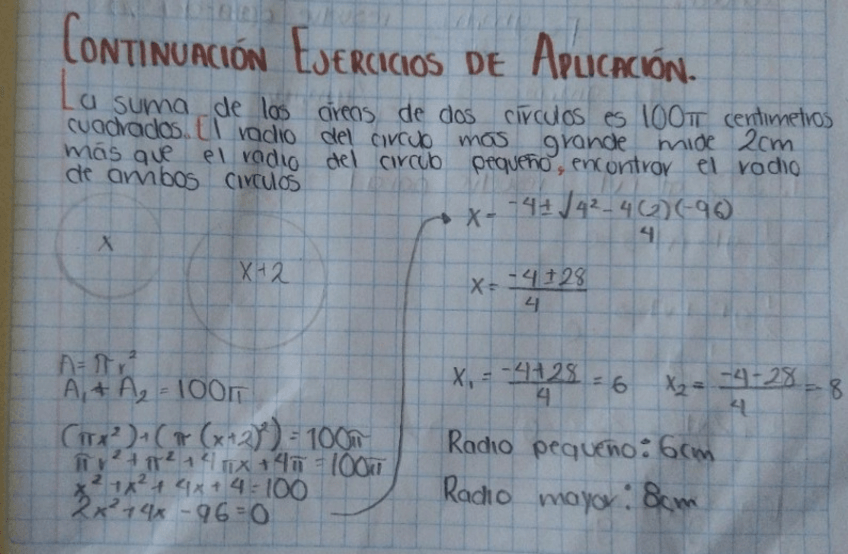 CONTINUACIÓN EJERCICIOS DE APLICACIÓN.
La suma de las áreas de dos círculos es 100π centimetros
cuadrados. El radio del circulo mas grande mide 2cm
más que el radio del circulo pequeño, encontrar el radio
de ambos circulos
x
x+2
A=πr²
A₁+A₂=100π
(πx²)+(π(x+2)²)=100π
πx²+π²+4πx+4π=100π
x²+x²+4x+4=100
2x²+4x-96=0
x= -4±√4²-4(2)(-96)
4
x= -4±28
4
x₁= -4+28 = 6 x₂= -4-28 =-8
4 4
Radio pequeño: 6cm
Radio mayor: 8cm